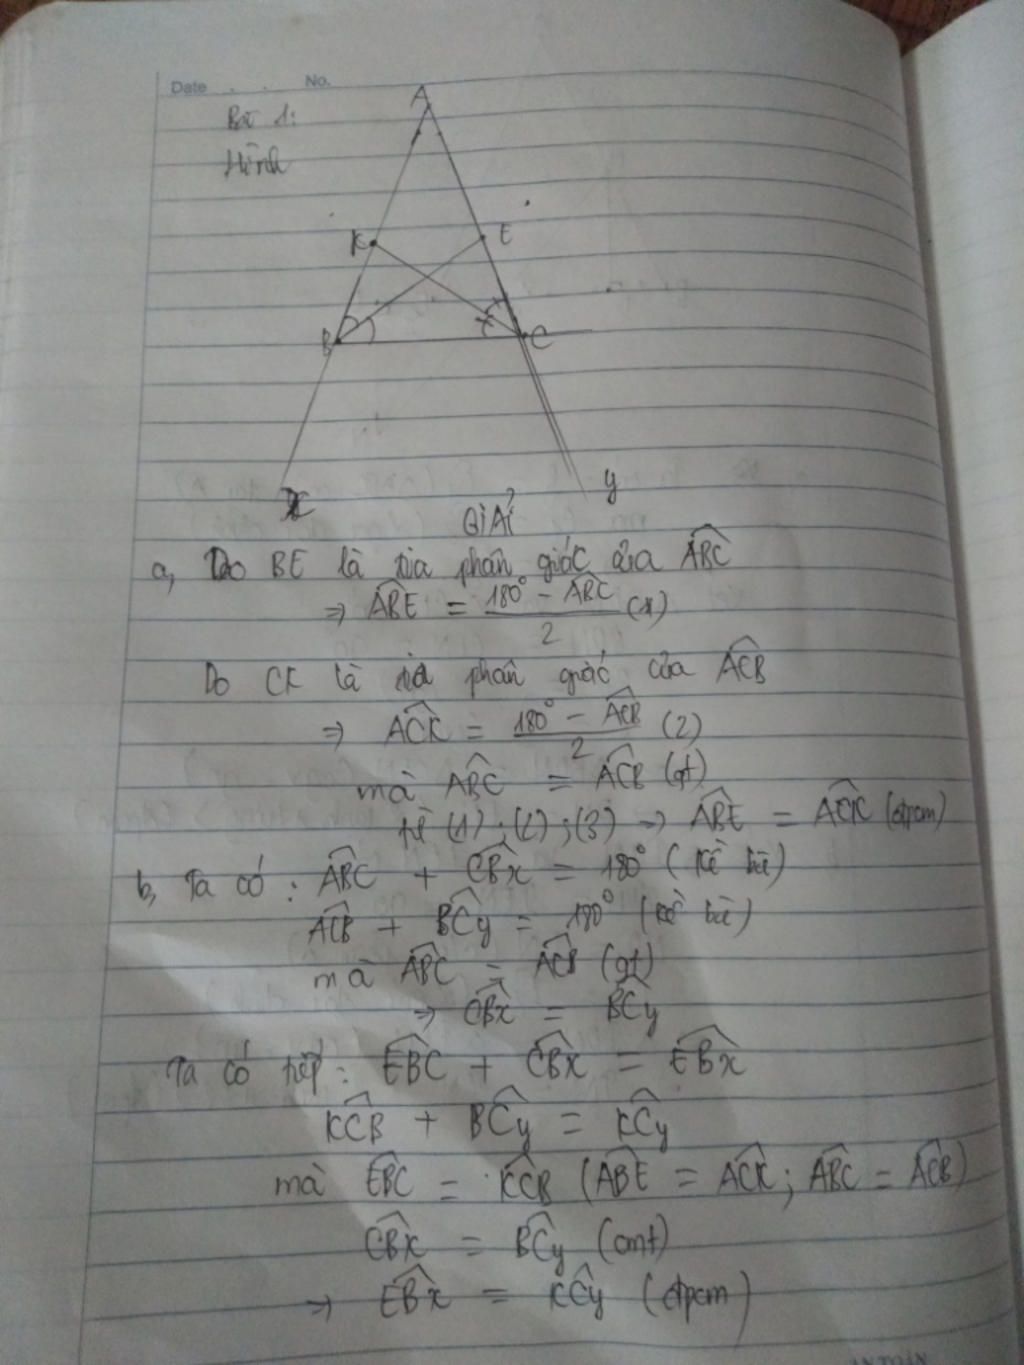 Date . . No.
Bài 1:
Hình
A
K E
B C
x y
GiẢi
a, Do BE là tia phân giác của ABC
⇒ ABE = 180° - ABC / 2 (1)
Do CK là tia phân giác của ACB
⇒ ACK = 180° - ACB / 2 (2)
mà ABC = ACB (gt)
từ (1); (2); (3) ⇒ ABE = ACK (đpcm)
b, Ta có: ABC + CBx = 180° (kề bù)
ACB + BCy = 180° (kề bù)
mà ABC = ACB (gt)
⇒ CBx = BCy
Ta có tiếp: EBC + CBx = EBx
KCB + BCy = KCy
mà EBC = KCB (ABE = ACK; ABC = ACB)
CBx = BCy (cmt)
⇒ EBx = KCy (đpcm)